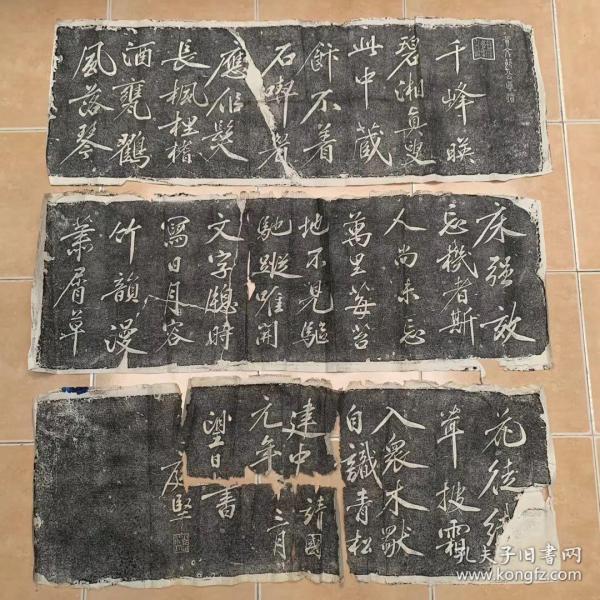 千峰暎
碧湘真叟
此中藏
飰不着
石喫眉
應似髮
長楓桯楮
酒甕鶴
風落琴
床強效
忘機者斯
人尚未忘
萬里莓苔
地不見驅
馳蹤唯開
文字牕時
寫日月容
竹韻漫
蕭屑草
花徒
茸披霜
入衆木獨
自識青松
建中靖國
元年三月
望日書
庭堅
孔夫子旧书网
www.kongfz.com